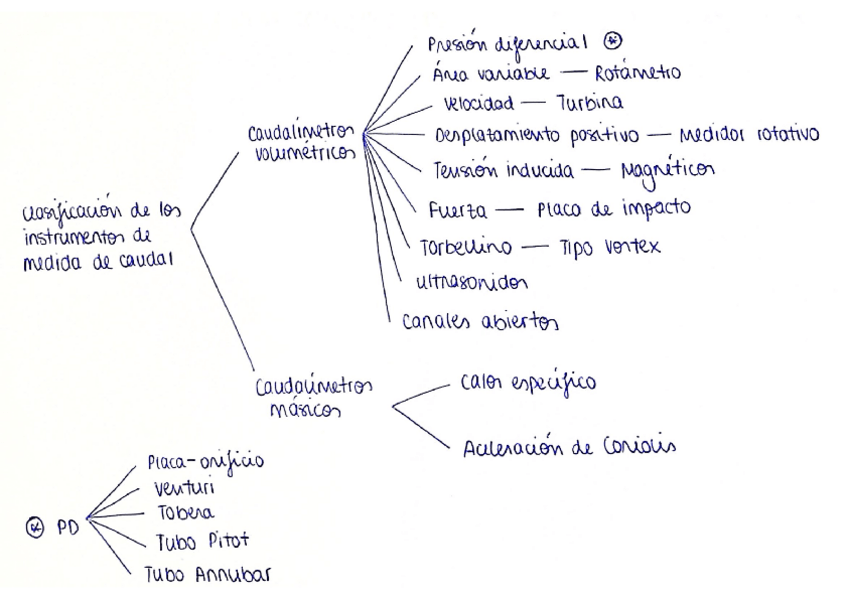 Presión diferencial *
Área variable — Rotámetro
Velocidad — Turbina
Caudalímetros
volumétricos
Desplazamiento positivo — Medidor rotativo
Tensión inducida — Magnéticos
Fuerza — Placa de impacto
Clasificación de los
instrumentos de
medida de caudal
Torbellino — Tipo Vortex
Ultrasonidos
Canales abiertos
Caudalímetros
másicos
Calor específico
Aceleración de Coriolis
* PD
Placa-orificio
Venturi
Tobera
Tubo Pitot
Tubo Annubar